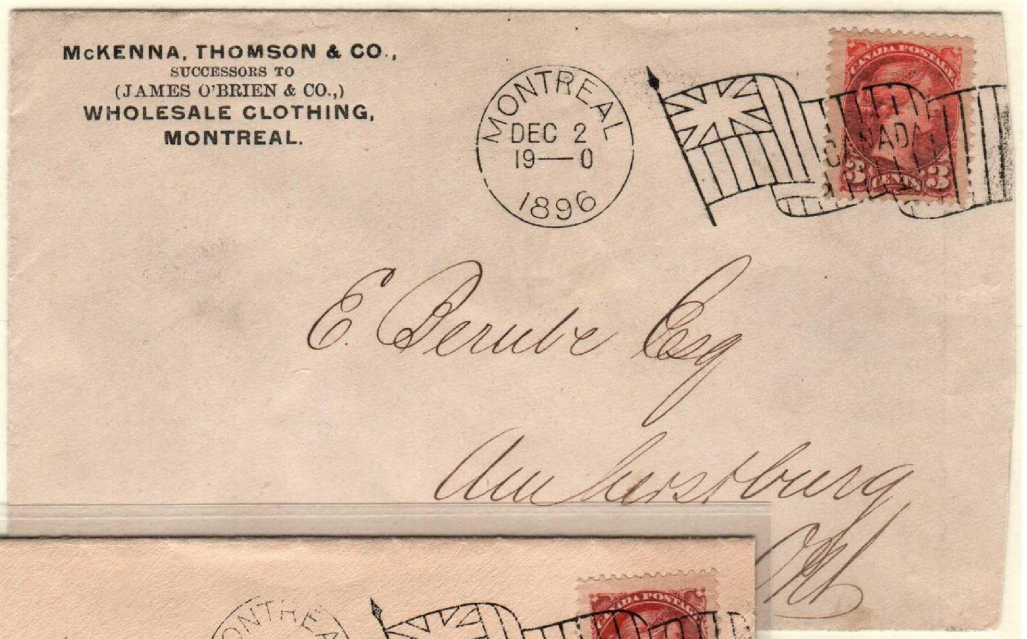 McKENNA, THOMSON & CO.,
SUCCESSORS TO
(JAMES O'BRIEN & CO.,)
WHOLESALE CLOTHING,
MONTREAL.
MONTREAL
DEC 2
19—0
1896
CANADA POSTAGE
CANADA
3 CENTS 3
E. Berube Esq
Amherstburg
Ont